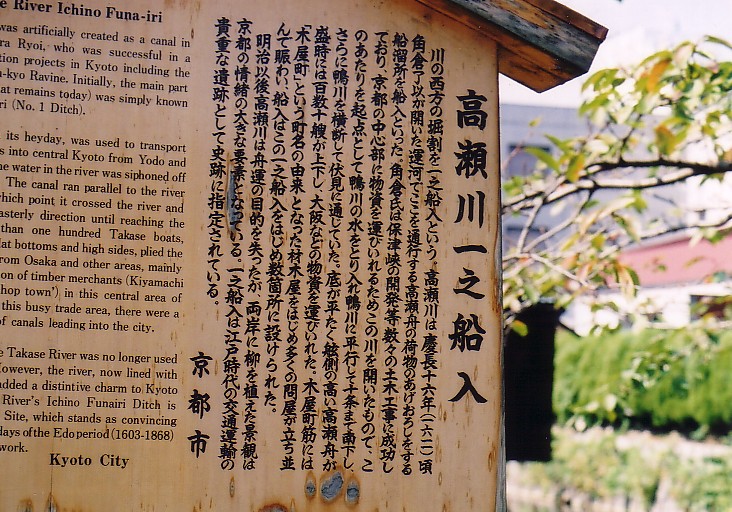 高瀬川一之船入
川の西方の堀割を一之船入という。高瀬川は慶長十六年(一六一一)頃
角倉了以が開いた運河でここを通行する高瀬舟の荷物のあげおろしをする
船溜所を船入といった。角倉氏は保津峡の開発等数々の土木工事に成功し
ており、京都の中心部に物資を運びいれるためこの川を開いたもので、こ
のあたりを起点として鴨川の水をとり入れ鴨川に平行して十条まで南下し、
さらに鴨川を横断して伏見に通じていた。底が平たく舷側の高い高瀬舟が
盛時には百数十艘が上下し、大阪などの物資を運びいれた。木屋町筋には
「木屋町」という町名の由来となった材木屋をはじめ多くの問屋が立ち並
んで賑わい、船入はこの一之船入をはじめ数箇所に設けられた。
明治以後高瀬川は舟運の目的を失ったが、両岸に柳を植えた景観は
京都の情緒の大きな要素となっている。一之船入は江戸時代の交通運輸の
貴重な遺跡として史跡に指定されている。
京都市
e River Ichino Funa-iri
was artificially created as a canal in
ra Ryoi, who was successful in a
tion projects in Kyoto including the
-kyo Ravine. Initially, the main part
at remains today) was simply known
ri (No. 1 Ditch).
its heyday, was used to transport
s into central Kyoto from Yodo and
he water in the river was siphoned off
The canal ran parallel to the river
which point it crossed the river and
asterly direction until reaching the
than one hundred Takase boats,
at bottoms and high sides, plied the
from Osaka and other areas, mainly
on of timber merchants (Kiyamachi
hop town') in this central area of
this busy trade area, there were a
f canals leading into the city.
e Takase River was no longer used
However, the river, now lined with
added a distinctive charm to Kyoto
River's Ichino Funairi Ditch is
Site, which stands as convincing
days of the Edo period (1603-1868)
work.
Kyoto City